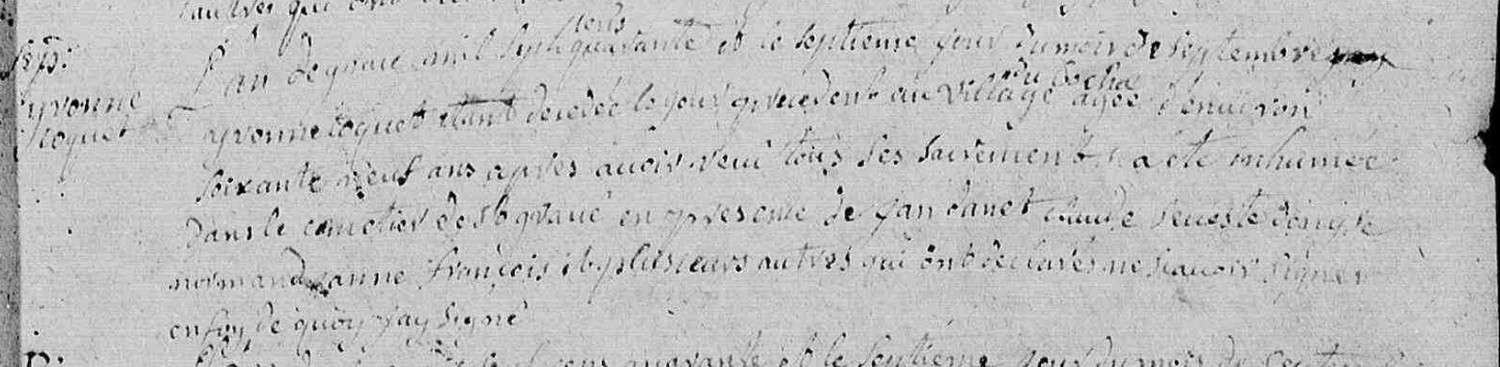 autres qui ont
sep:
yvonne
toquet
L'an de grace mil sept cents quarante et le septieme jour du mois de septembre
yvonne toquet etant decedée le jour precedent au village du agée d'environ
soixante neuf ans apres avoir receu tous ses sacrements a été inhumée
dans le cimetier de en presence de jan danet claude denise
normand janne françois et plusieurs autres qui ont declarés ne scavoir signer
en foy de quoy j'ay signé
cens quarante et le septieme jour du mois de